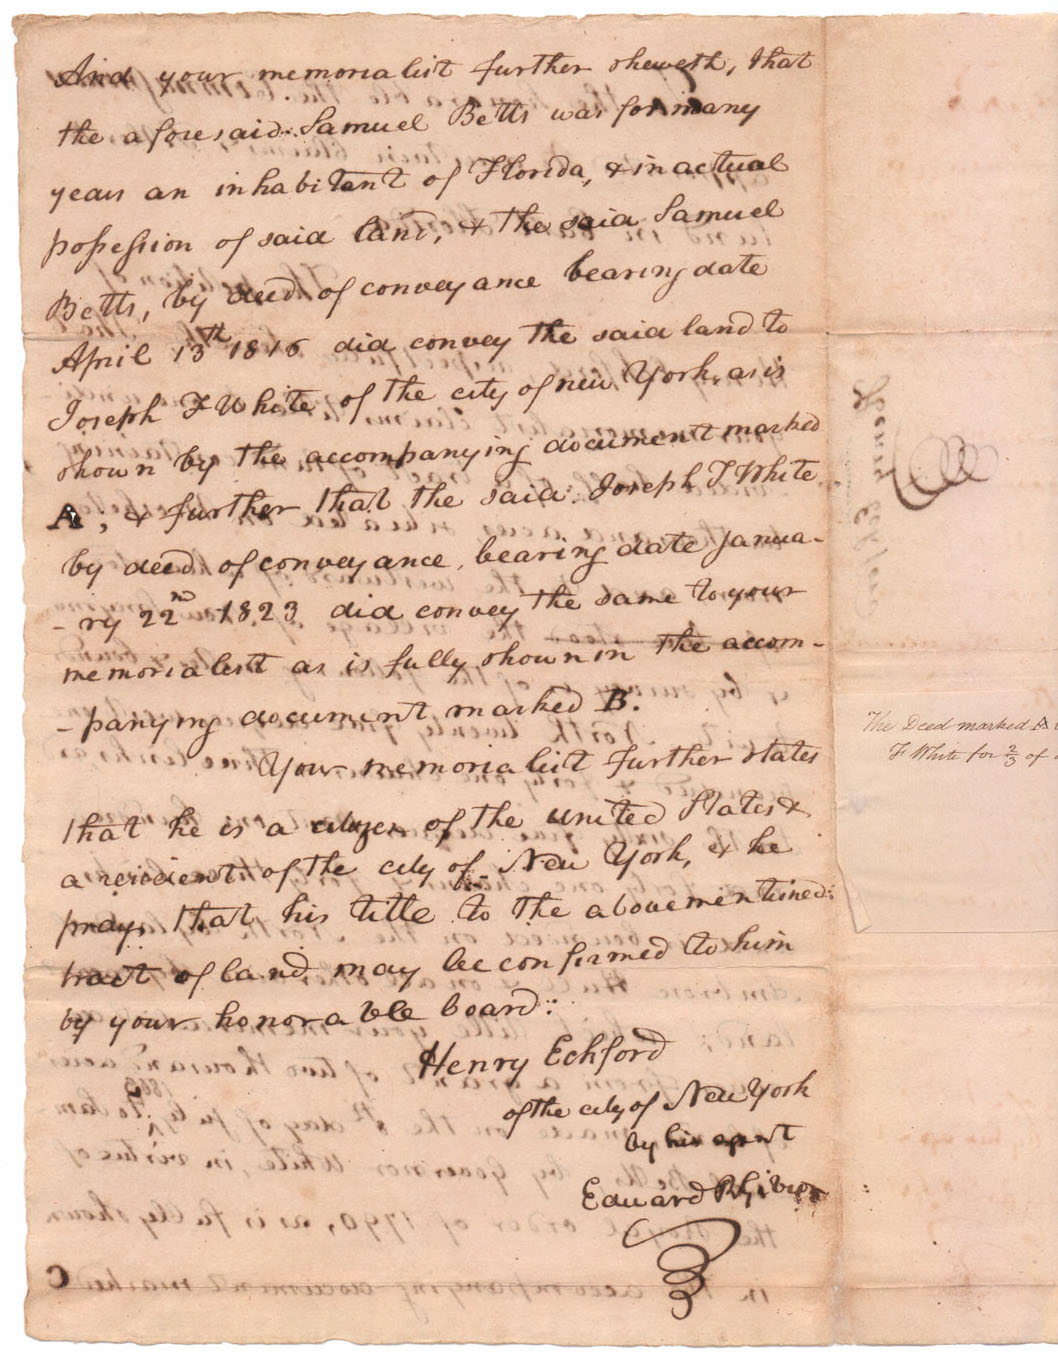 And your memorialist further sheweth, that
the aforesaid Samuel Betts was for many
years an inhabitant of Florida, & in actual
possession of said land, & the said Samuel
Betts, by deed of conveyance bearing date
April 13th 1816 did convey the said land to
Joseph F White of the city of new York, as is
shown by the accompanying document marked
A; & further that the said Joseph F White
by deed of conveyance, bearing date Janua-
-ry 22nd 1823, did convey the same to your
memorialist as is fully shown in the accom-
-panying document marked B.
Your memorialist further states
that he is a citizen of the united States &
a resident of the city of New York, & he
prays that his title to the abovementioned
tract of land may be confirmed to him
by your honorable board:
Henry Eckford
of the city of New York
by his agent
Edward R Gibson
C
The Deed marked A
F White for 2/3 of